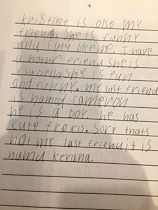 kristine is olso my
friend. She is funny
and funy like me. I have
a nother friend she is
she is fun
and funny. my last friend
is named cameron
he is a boy. he has
cute frekls. Sory thats
not my last friend it is
namd kerana.